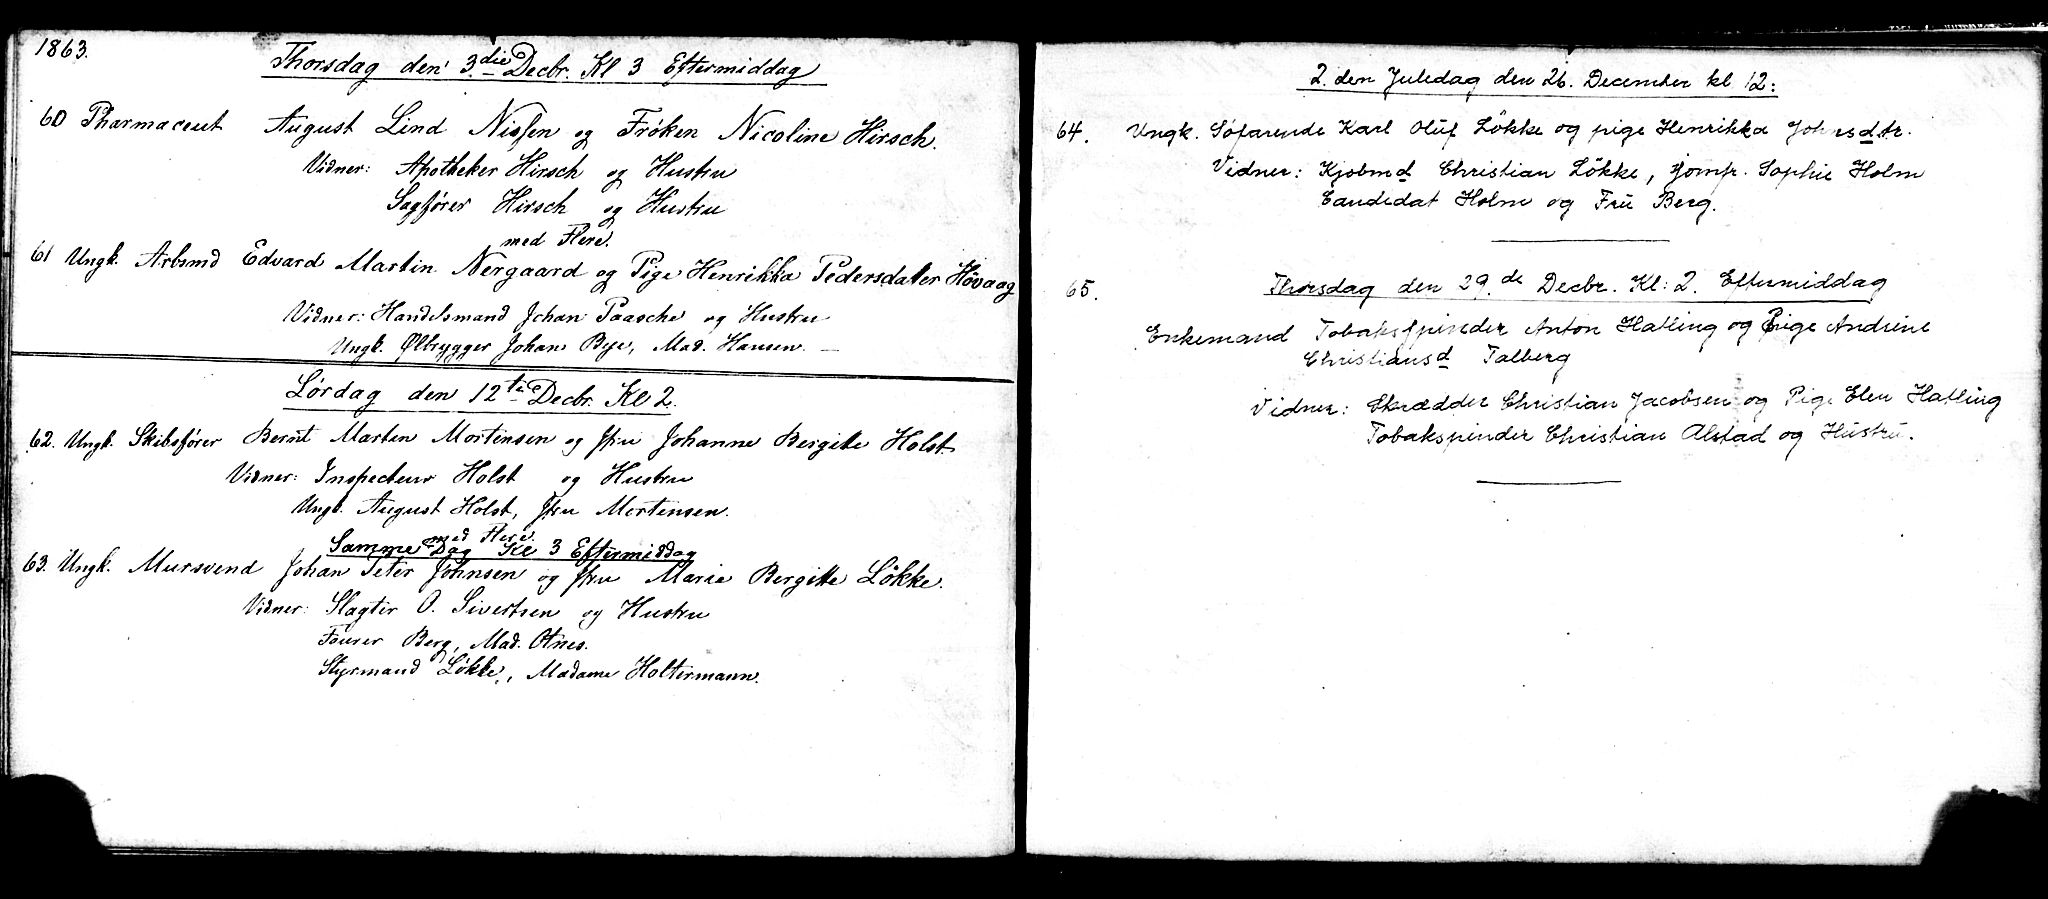 1863.
Thorsdag den 3die Decbr. Kl 3 Eftermiddag
60 Pharmaceut August Lind Nissen og Frøken Nicoline Hirsch.
Vidner: Apotheker Hirsch og Hustru
Sagfører Hirsch og Hustru
med Flere.
61 Ungk. Arbsmd Edvard Martin Nergaard og Pige Henrikka Pedersdatter Hövaag
Vidner: Handelsmand Johan Paasche og Hustru
Ungk. Ølbrygger Johan Bye, Mad. Hansen. —
Lørdag den 12te Decbr. Kl 2.
62. Ungk. Skibsfører Bernt Marten Mortensen og Jfru Johanne Bergitte Holst.
Vidner: Inspecteur Holst og Hustru
Ungk. August Holst, Jfru Mortensen.
med Flere.
Samme Dag Kl 3 Eftermiddag
63. Ungk. Mursvend Johan Peter Johnsen og Jfru Marie Bergitte Lökke.
Vidner: Slagter O. Sivertsen og Hustru
Fourer Berg, Mad. Otnes.
Styrmand Løkke, Madame Holtermann.
2.den Juledag den 26. December kl 12:
64. Ungk. Søfarende Karl Oluf Lökke og pige Henrikka Johnsdtr.
Vidner: Kjøbmd Christian Lökke, jomfr. Sophie Holm
Candidat Holm og Frü Berg.
65. Thorsdag den 29.de Decbr. Kl: 2. Eftermiddag
Enkemand Tobaksspinder Anton Hatling og Pige Andrine
Christiansd Talberg
Vidner: Skrædder Christian Jacobsen og Pige Elen Hatling
Tobakspinder Christian Alstad og Hüstrü.